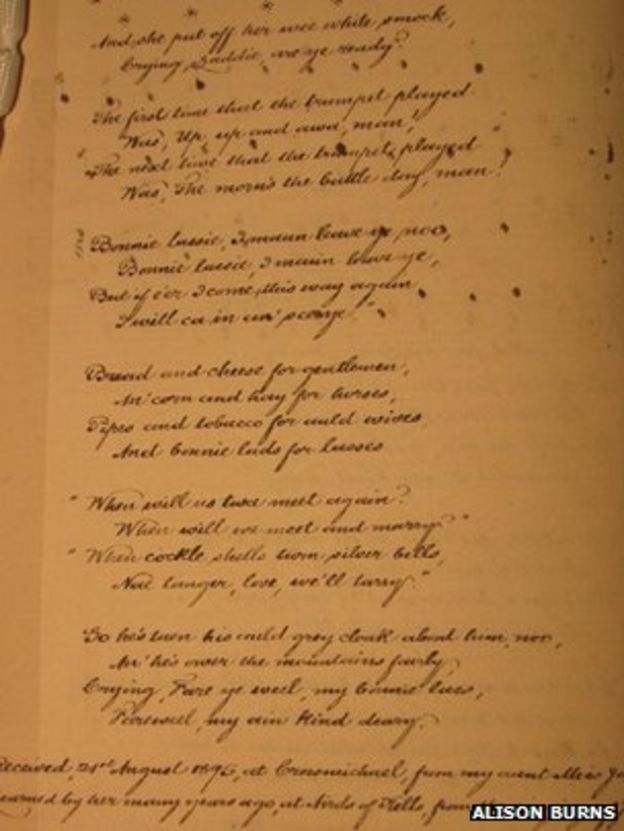 And she put off her wee white smock,
Crying, Laddie, are ye ready?
The first time that the trumpet played
Was, Up, up and awa, man!
"The next time that the trumpet played"
Was, The morn's the battle day, man!
Bonnie lassie, I maun leave ye noo,
Bonnie lassie, I maun leave ye,
But if e'er I come this way again
I will ca in an' ye."
Bread and cheese for gentlemen,
An' corn and hay for horses,
Pipes and tobacco for auld wives
And bonnie lads for lasses
"When will us twa meet again?
When will we meet and marry?"
"When cockle shells turn silver bells,
Nae langer, love, we'll tarry."
So he's ta'en his auld grey cloak about him, noo,
An' he's ower the mountains fairly,
Crying, Fare ye weel, my bonnie lass,
Fareweel, my ain kind deary.
Received, 21st August 1895, at Crossmichael, from my aunt
learned by her many years ago, at of Kells, from
ALISON BURNS